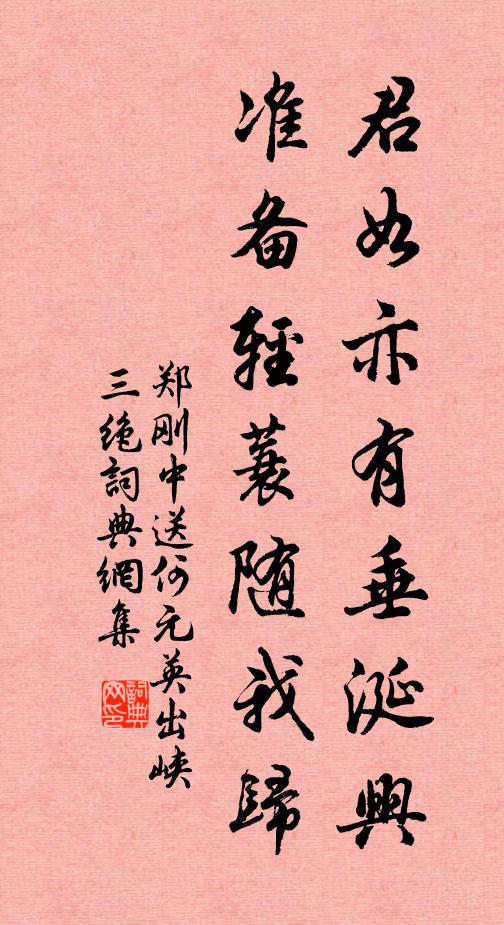 君如亦有垂涎興
准备輕蓑随我歸
郑刚中送何元英出峡
三绝詞典網集
詞典网印